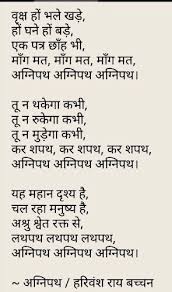 वृक्ष हों भले खड़े,
हों घने हों बड़े,
एक पत्र छाँह भी,
माँग मत, माँग मत, माँग मत,
अग्निपथ अग्निपथ अग्निपथ।
तू न थकेगा कभी,
तू न रुकेगा कभी,
तू न मुड़ेगा कभी,
कर शपथ, कर शपथ, कर शपथ,
अग्निपथ अग्निपथ अग्निपथ।
यह महान दृश्य है,
चल रहा मनुष्य है,
अश्रु श्वेत रक्त से,
लथपथ लथपथ लथपथ,
अग्निपथ अग्निपथ अग्निपथ।
~ अग्निपथ / हरिवंश राय बच्चन